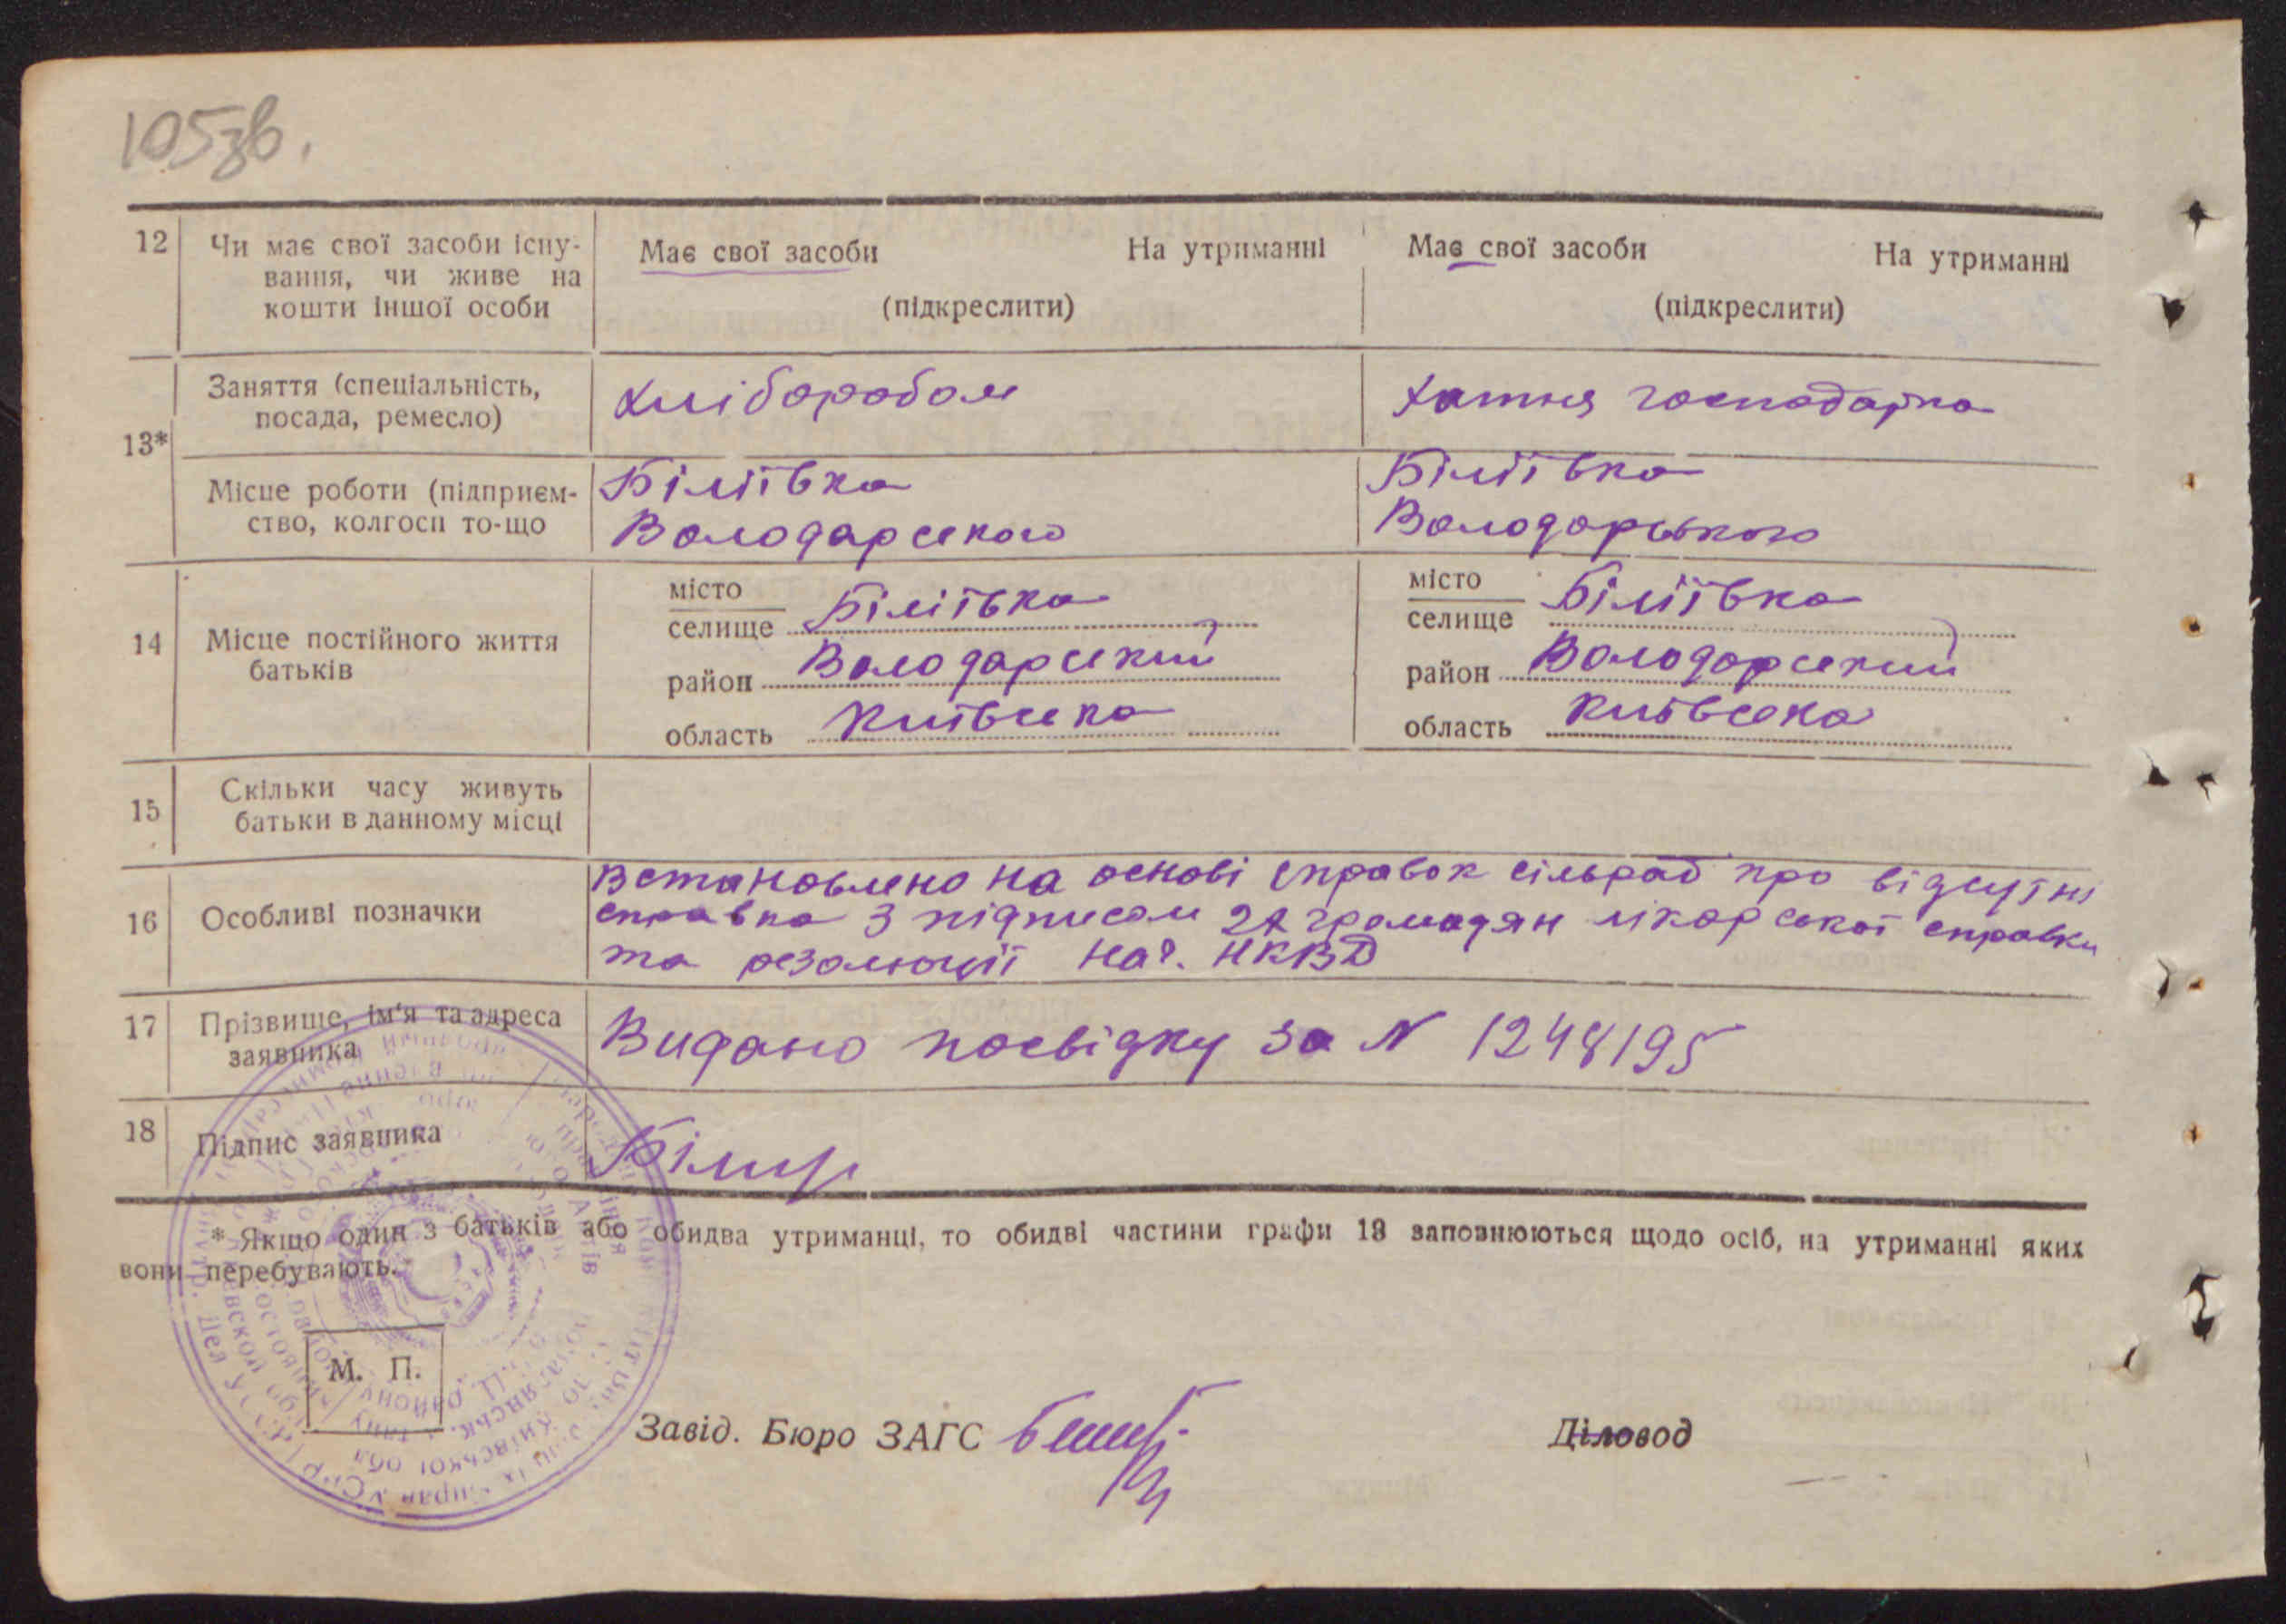 105зв.
12 Чи має свої засоби існу- Має свої засоби На утриманні Має свої засоби На утриманні
вання, чи живе на
кошти іншої особи (підкреслити) (підкреслити)
13*
Заняття (спеціальність, Хліборобом Хатня господарка
посада, ремесло)
Місце роботи (підприєм- Біліївка Біліївка
ство, колгосп то-що Володарського Володарського
14 Місце постійного життя батьків
місто Біліївка місто Біліївка
селище селище
район Володарський район Володарский
область Київска область Київска
15 Скільки часу живуть
батьки в данному місці
16 Особливі позначки
Встановлено на основі справок сільрад про відсутні
справка з підписом 2х громадян лікарської справки
та резолюції нач. НКВД
17 Прізвище, ім'я та адреса Видано посвідку за N 1248195
заявника
18 Підпис заявника
* Якщо один з батьків або обидва утриманці, то обидві частини графи 13 заповнюються щодо осіб, на утриманні яких
вони перебувають.
М. П.
Завід. Бюро ЗАГС Діловод